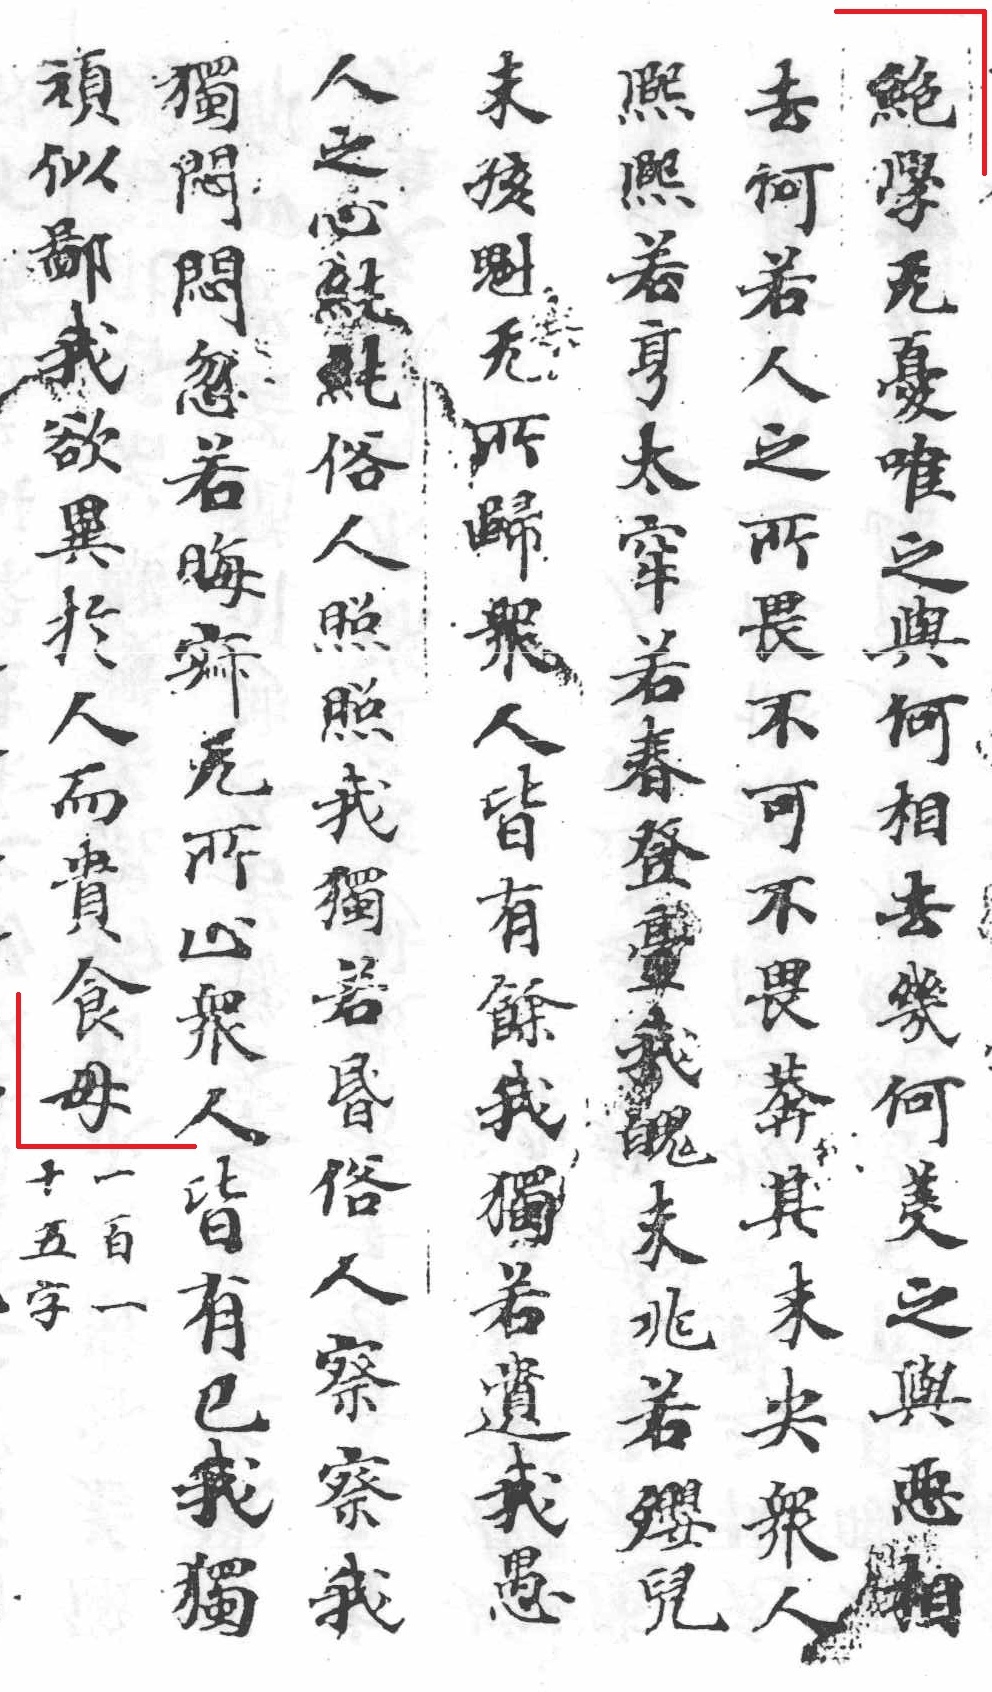 絶學无憂唯之與何相去幾何美之與惡相
去何若人之所畏不可不畏莽其未央衆人
熙熙若亨太牢若春登臺我魄未兆若嬰兒
未孩魁无所歸衆人皆有餘我獨若遺我愚
人之心純純俗人照照我獨若昏俗人察察我
獨悶悶忽若晦寂无所止衆人皆有已我獨
頑似鄙我欲異於人而貴食母
一百一
十五字